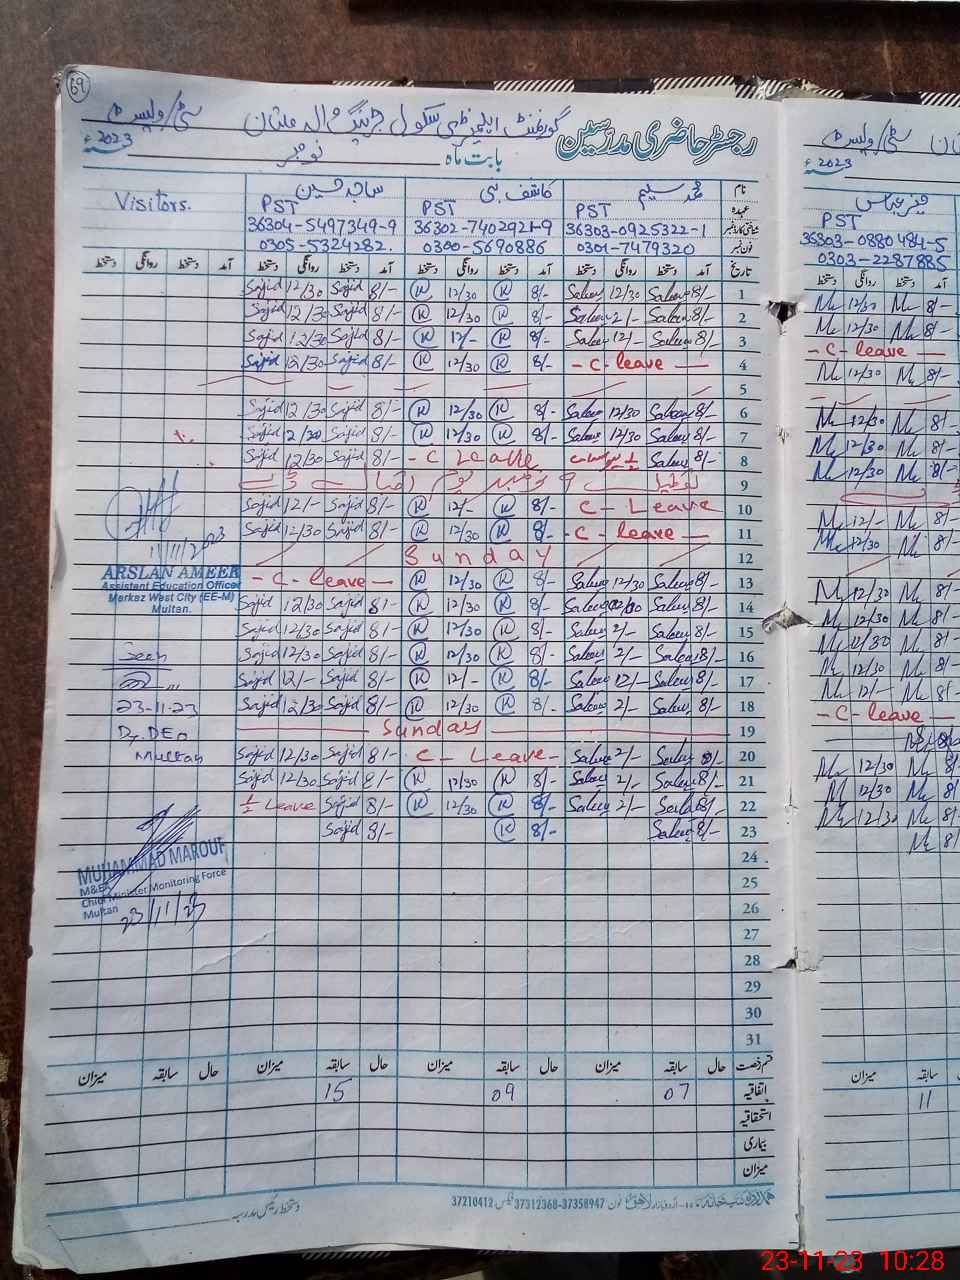 69
رجسٹر حاضری مدرسین گورنمنٹ ایلیمنٹری سکول ملتان سٹی/ویسٹ
بابت ماہ نومبر 2023ء
نام محمد سلیم کاشف نبی ساجد حسین Visitors.
عہدہ PST PST PST
شناختی کارڈ نمبر 36303-0925322-1 36302-7402921-9 36304-5497349-9
فون نمبر 0301-7479320 0300-5690886 0305-5324282.
تاریخ آمد دستخط روانگی دستخط آمد دستخط روانگی دستخط آمد دستخط روانگی دستخط آمد دستخط روانگی دستخط
Sajid 12/30 Sajid 8/- K 12/30 K 8/- Saleem 12/30 Saleem 8/- 1
Sajid 12/30 Sajid 8/- K 12/30 K 8/- Saleem 2/- Saleem 8/- 2
Sajid 12/30 Sajid 8/- K 12/- K 8/- Saleem 12/- Saleem 8/- 3
Sajid 12/30 Sajid 8/- K 12/30 K 8/- - C - leave - 4
5
Sajid 12/30 Sajid 8/- K 12/30 K 8/- Saleem 12/30 Saleem 8/- 6
Sajid 12/30 Sajid 8/- K 12/30 K 8/- Saleem 12/30 Saleem 8/- 7
Sajid 12/30 Sajid 8/- - C Leave Saleem 8/- 8
تعطیل 9 نومبر یوم اقبال 9
Sajid 12/- Sajid 8/- K 12/- K 8/- C - Leave 10
Sajid 12/30 Sajid 8/- K 12/30 K 8/- - C - leave - 11
Sunday 12
- C - leave - K 12/30 K 8/- Saleem 12/30 Saleem 8/- 13
Sajid 12/30 Sajid 8/- K 12/30 K 8/- Saleem Saleem 8/- 14
Sajid 12/30 Sajid 8/- K 12/30 K 8/- Saleem 2/- Saleem 8/- 15
Sajid 12/30 Sajid 8/- K 12/30 K 8/- Saleem 2/- Saleem 8/- 16
Sajid 12/- Sajid 8/- K 12/- K 8/- Saleem 12/- Saleem 8/- 17
Sajid 12/30 Sajid 8/- K 12/30 K 8/- Saleem 2/- Saleem 8/- 18
Sunday 19
Sajid 12/30 Sajid 8/- C - Leave - Saleem 2/- Saleem 8/- 20
Sajid 12/30 Sajid 8/- K 12/30 K 8/- Saleem 2/- Saleem 8/- 21
1/2 Leave Sajid 8/- K 12/30 K 8/- Saleem 2/- Saleem 8/- 22
Sajid 8/- K 8/- Saleem 8/- 23
24
25
26
27
28
29
30
31
11/11/2023
ARSLAN AMEER
Assistent Education Officer
Markaz West City (EE-M)
Multan.
Seen
23-11-23
Dy.DEO
Multan
MUHAMMAD MAROUF
M&EA
Chief Minister Monitoring Force
Multan
23/11/23
قسم رخصت حال سابقہ میزان حال سابقہ میزان حال سابقہ میزان حال سابقہ میزان
اتفاقیہ 07 09 15
استحقاقیہ
بیماری
میزان
دستخط رئیس مدرسہ
اردو بازار لاہور فون 37358947-37312368 فیکس 37210412
سٹی/ویسٹ
2023ء
PST
36303-0880484-5
0303-2287885
آمد دستخط روانگی دستخط
12/30 8/-
12/30 8/-
- C - leave -
12/30 8/-
12/30 8/-
12/30 8/-
12/30 8/-
12/- 8/-
12/30 8/-
12/30 8/-
12/30 8/-
12/30 8/-
12/30 8/-
12/- 8/-
- C - leave -
12/30 8/-
12/30 8/-
12/30 8/-
8/
سابقہ میزان
11
23-11-23 10:28